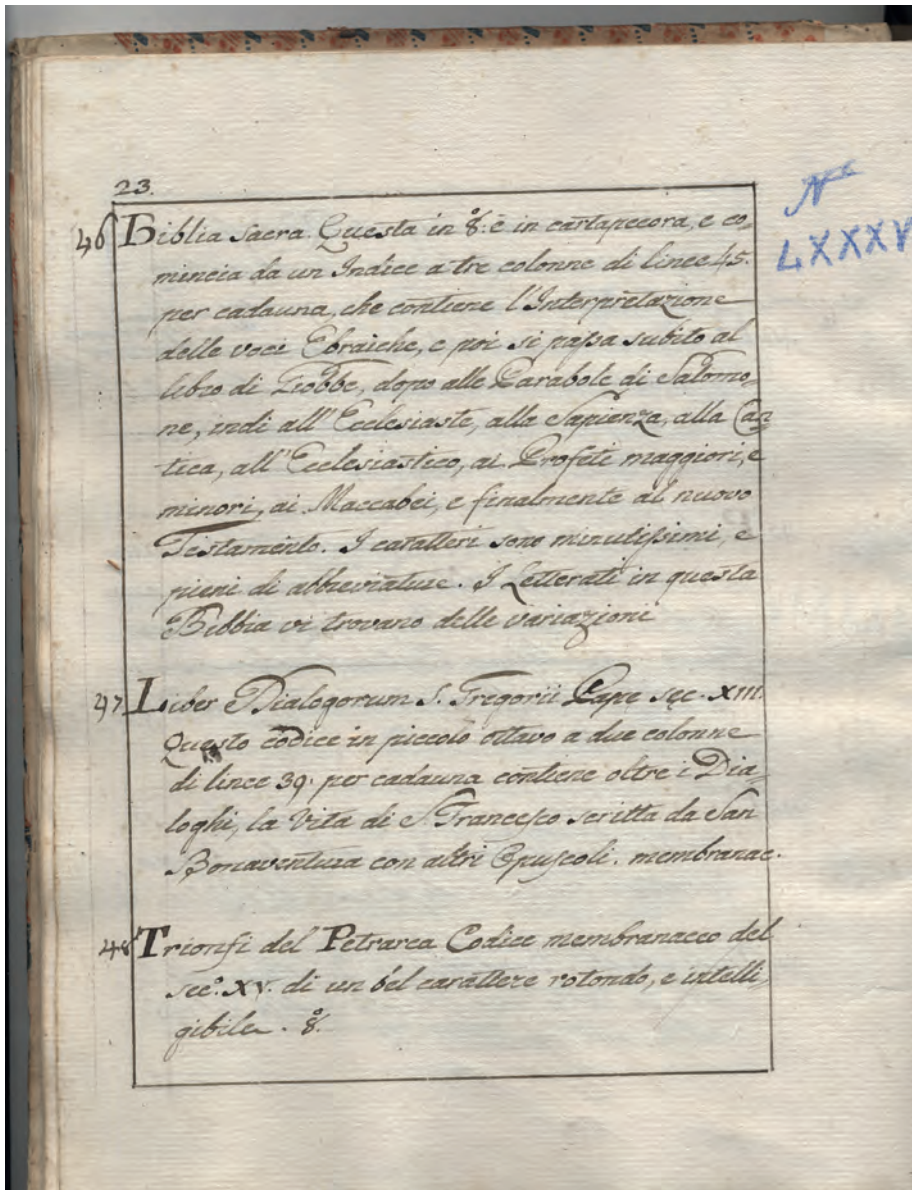 23.
Nº
LXXXV
46 Biblia Sacra. Questa in 8.º è in cartapecora, e co=
mincia da un Indice a tre colonne di linee 45.
per cadauna, che contiene l'Interpretazione
delle voci Ebraiche, e poi si passa subito al
libro di Giobbe, dopo alle Parabole di Salomo=
ne, indi all'Ecclesiaste, alla Sapienza, alla Can=
tica, all'Ecclesiastico, ai Profeti maggiori, e
minori, ai Maccabei, e finalmente al nuovo
Testamento. I caratteri sono minutissimi, e
pieni di abbreviature. I Letterati in questa
Bibbia vi trovano delle variazioni
47 Liber Dialogorum S. Gregorii Pape sec. XIII.
Questo codice in piccolo ottavo a due colonne
di linee 39. per cadauna contiene oltre i Dia=
loghi, la Vita di S. Francesco scritta da San
Bonaventura con altri Opuscoli. membranac.
48 Trionfi del Petrarca Codice membranaceo del
sec.º XV. di un bel carattere rotondo, e intelli=
gibile. 8.º